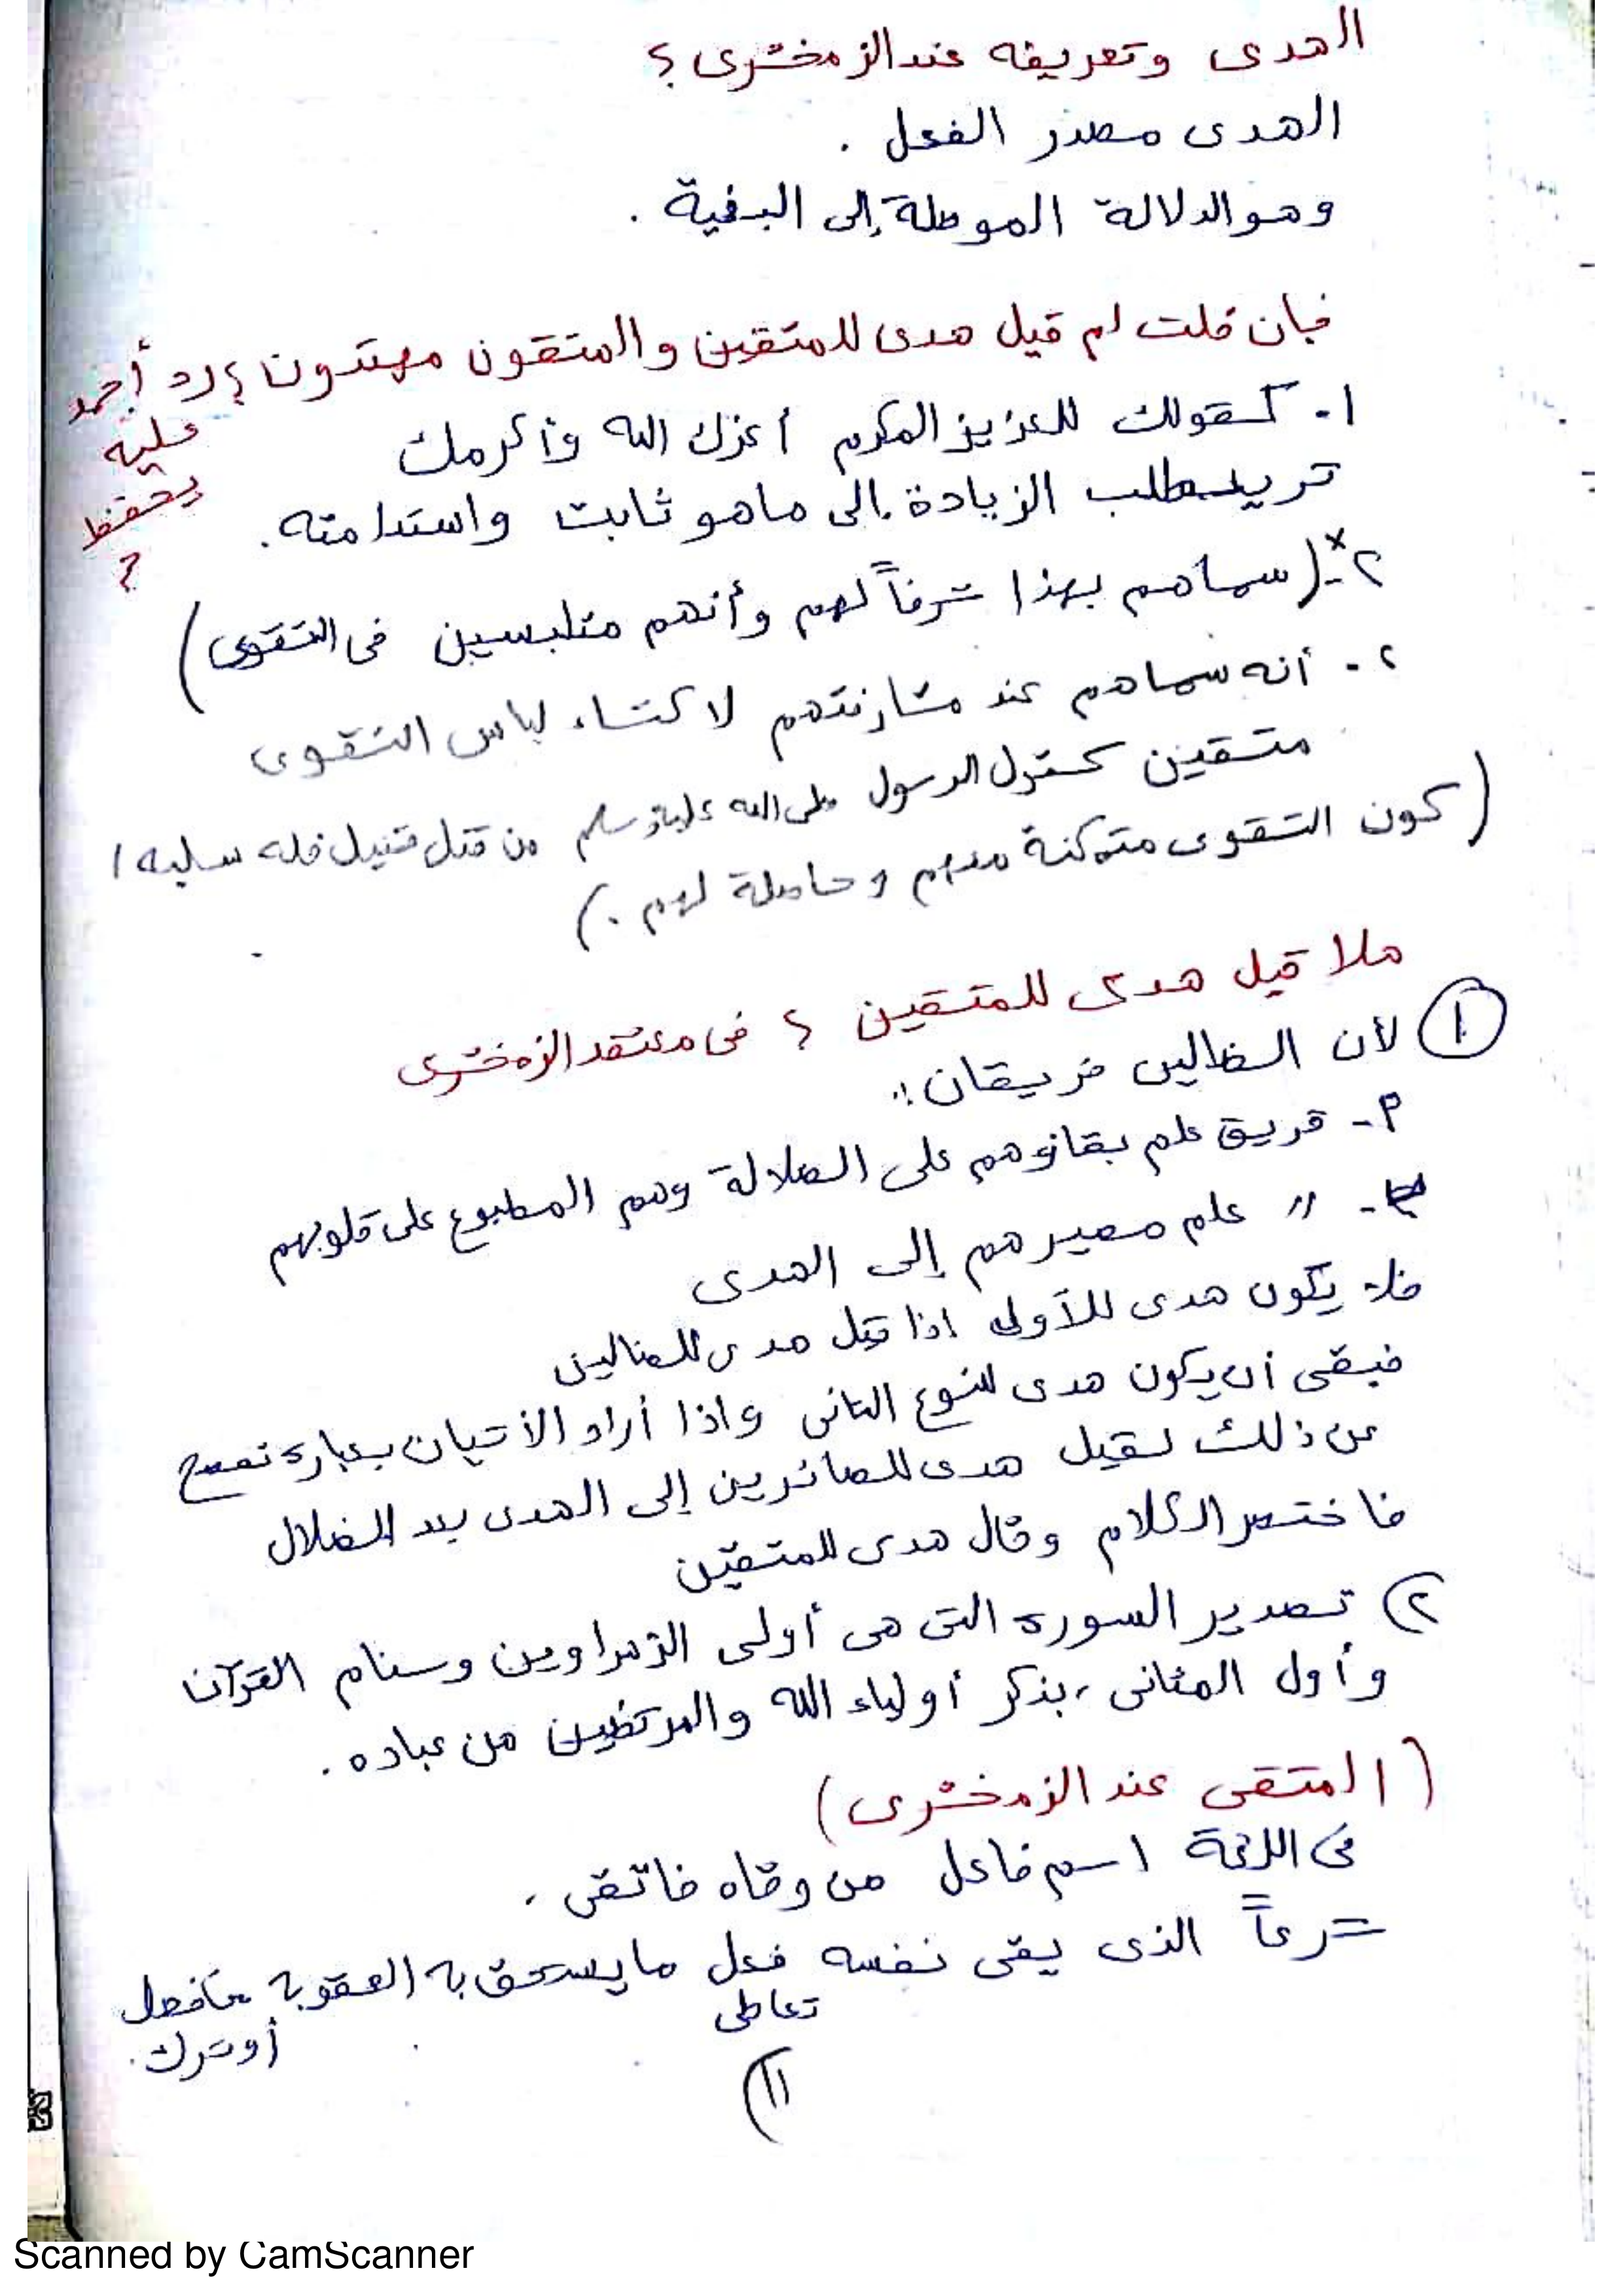 الهدى وتعريفه عند الزمخشرى ؟
الهدى مصدر الفعل .
وهو الدلالة الموصلة إلى البغية .
فإن قلت لم قيل هدى للمتقين والمتقون مهتدون ؟ رد أحمد
عليه
يحفظ
؟
١- كقولك للعزيز المكرم أعزك الله وأكرمك
تريد طلب الزيادة إلى ماهو ثابت واستدامته .
٢-* (سماهم بهذا شرفاً لهم وأنهم متلبسين فى التقوى)
٢- أنه سماهم عند مشارفتهم لاكتساء لباس التقوى
متقين كقول الرسول صلى الله عليه وسلم من قتل قتيل فله سلبه ا
(كون التقوى متمكنة منهم وحاصلة لهم .)
هلا قيل هدى للمتقين ؟ فى معتقد الزمخشرى
١ لأن الضالين فريقان :
٢- فريق علم بقاؤهم على الضلالة وهم المطبوع على قلوبهم
- " علم مصيرهم إلى الهدى
فلا يكون هدى للأولى اذا قيل هدى للضالين
فبقى أن يكون هدى للنوع الثانى واذا أراد الأتيان بعبارة تفصح
عن ذلك لقيل هدى للصائرين إلى الهدى بعد الضلال
فاختصر الكلام وقال هدى للمتقين
٢) تصدير السورة التى هى أولى الزهراوين وسنام القرآن
وأول المثانى ، بذكر أولياء الله والمرتضين من عباده .
(المتقى عند الزمخشرى)
فى اللغة اسم فاعل من وقاه فاتقى .
شرعاً الذى يقى نفسه فعل ما يستحق به العقوبة من فعل
تعاطى
أو ترك .
١١
Scanned by CamScanner